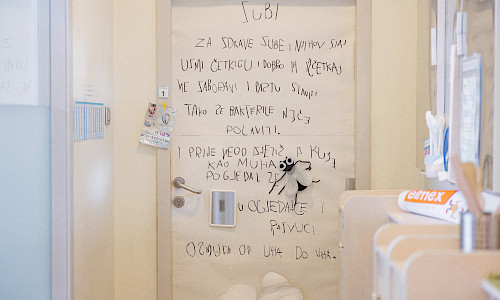 ZUBI
ZA ZDRAVE ZUBE I NJIHOV SJAJ
UZMI ČETKICU I DOBRO IH ČETKAJ
NE ZABORAVI I PASTU STAVITI
TAKO ĆE BAKTERIJE
POLAVITI.
I PRIJE NEGO
KAO MUHA
POGLEDAJ SE
U OGLEDALCE I
RAZVUCI
OSMIJEH OD UHA DO UHA.
1
elmex